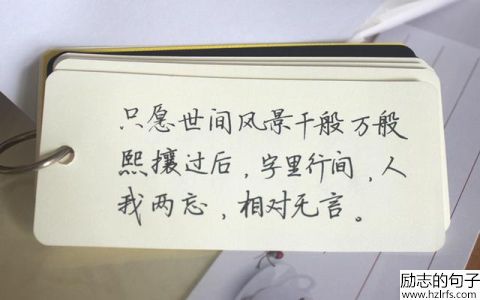 只愿世间风景千般万般
熙攘过后，字里行间，人
我两忘，相对无言。
励志的句子
www.hzlrfs.com